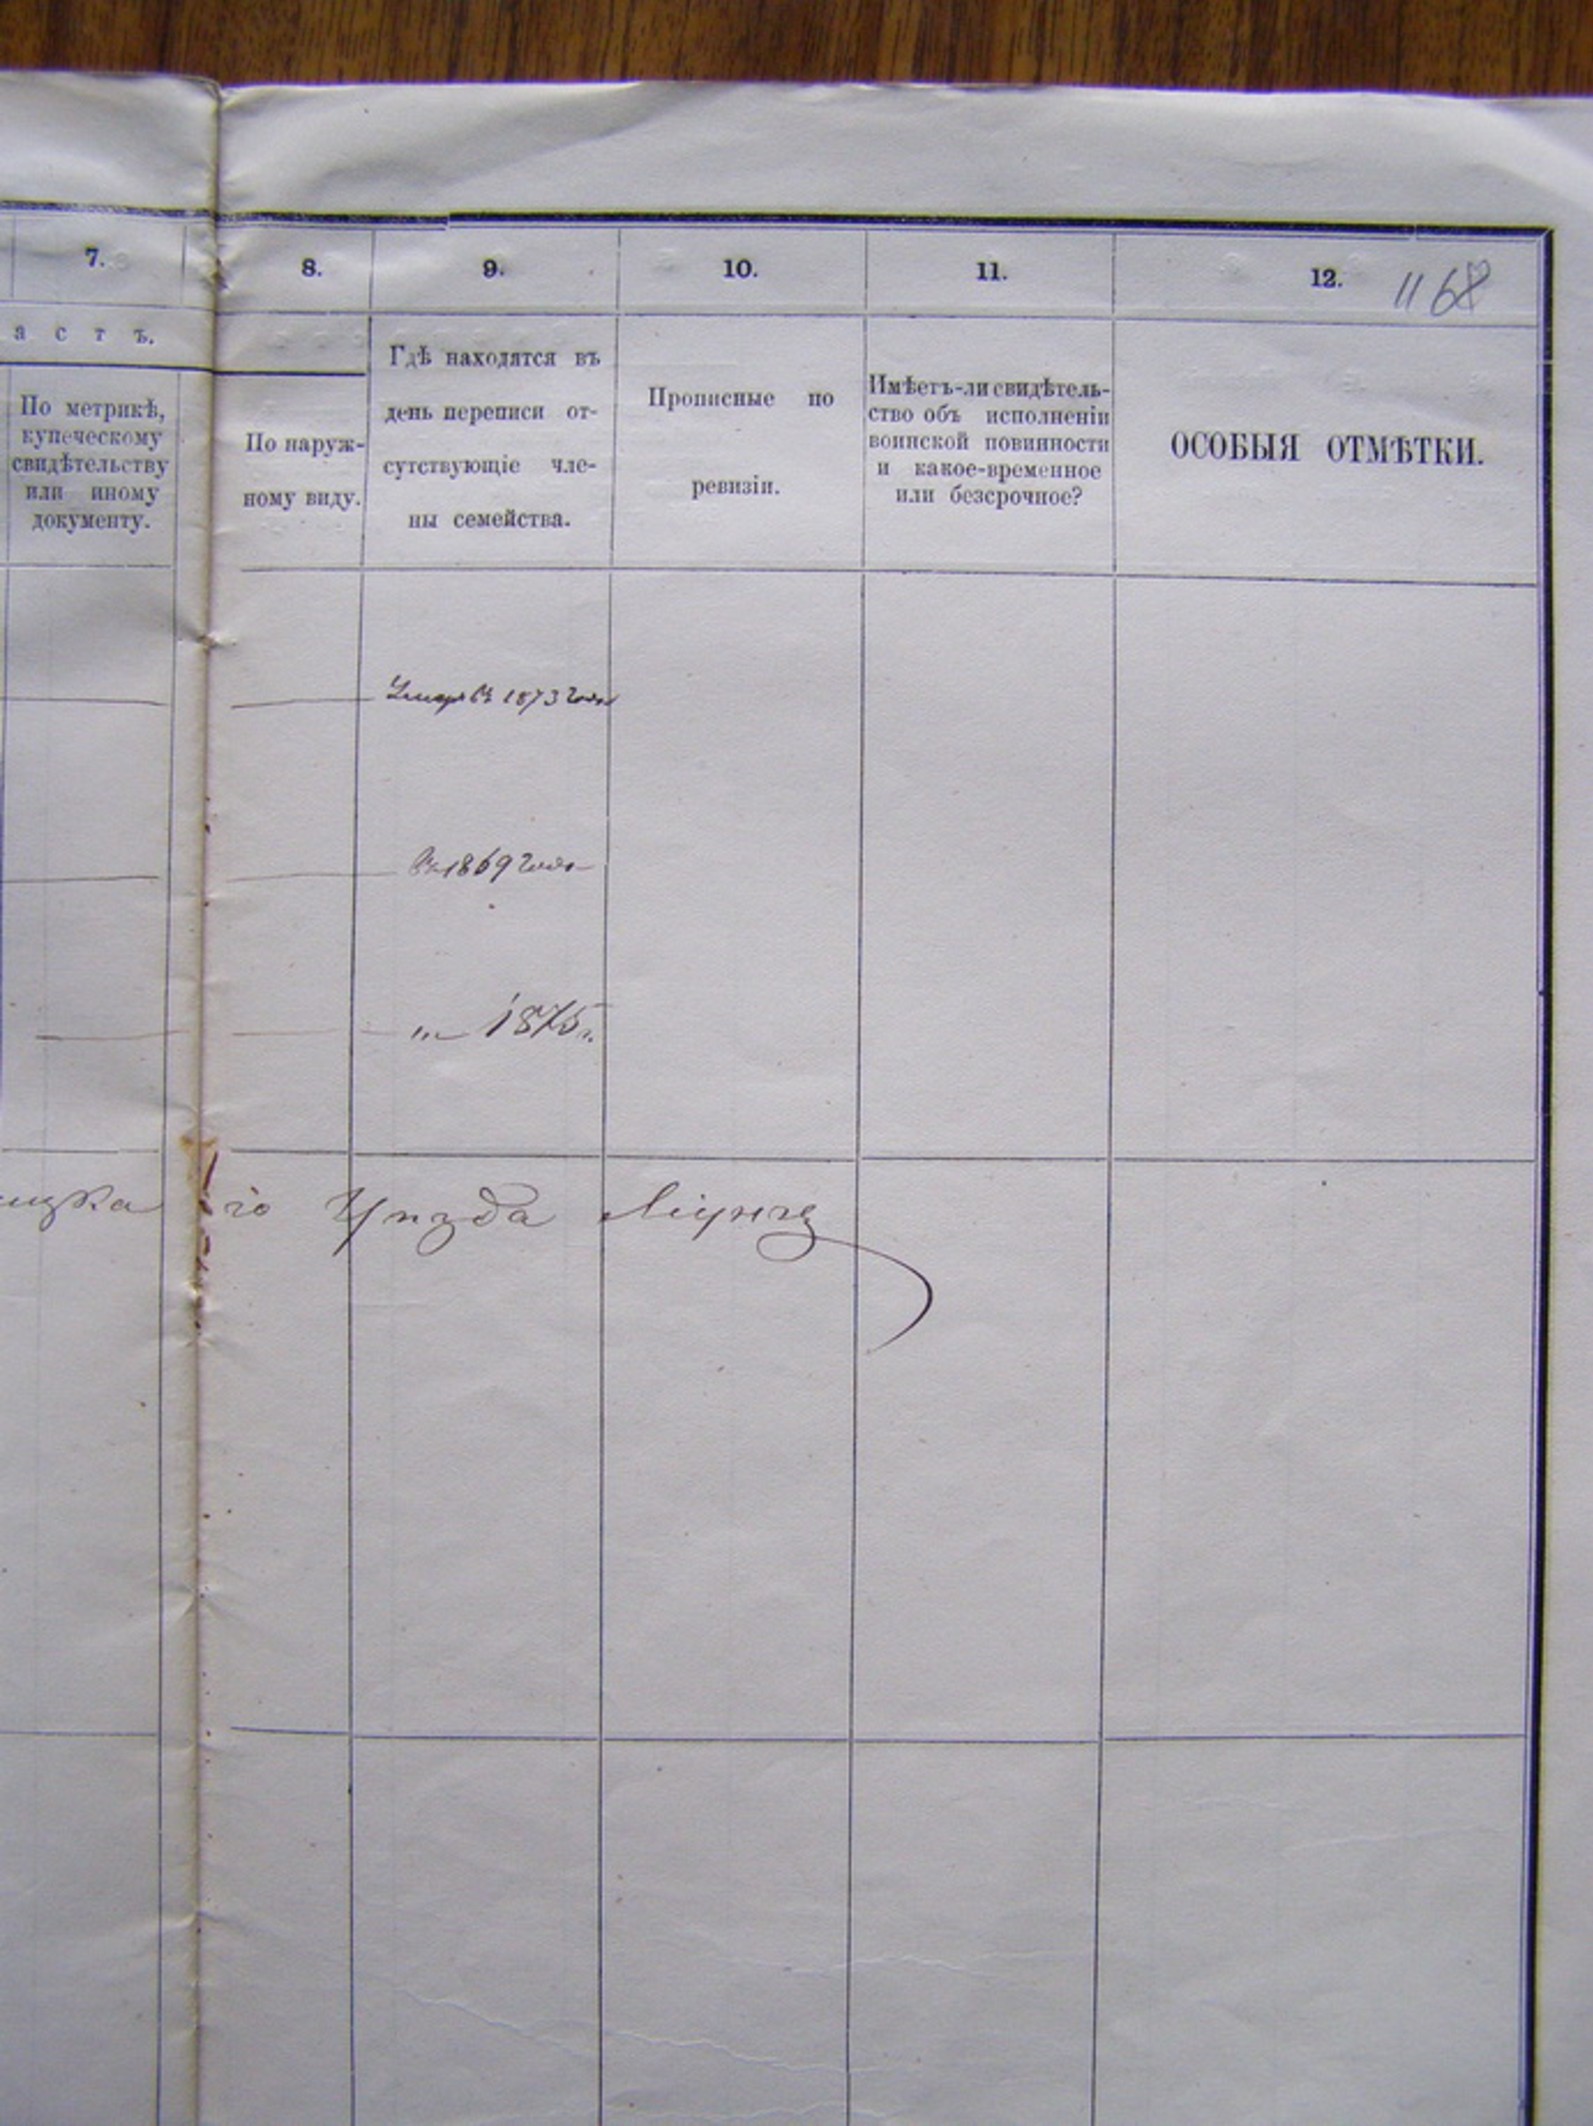 7. 8. 9. 10. 11. 12. 1168
а с т ъ.
По метрикѣ,
купеческому
свидѣтельству
или иному
документу.
По наруж-
ному виду.
Гдѣ находятся въ
день переписи от-
сутствующіе чле-
ны семейства.
Прописные по
ревизіи.
Имѣетъ-ли свидѣтель-
ство объ исполненіи
воинской повинности
и какое-временное
или безсрочное?
ОСОБЫЯ ОТМѢТКИ.
Умеръ въ 1873 году
въ 1869 году
"— 1875 г.
го Уѣзда